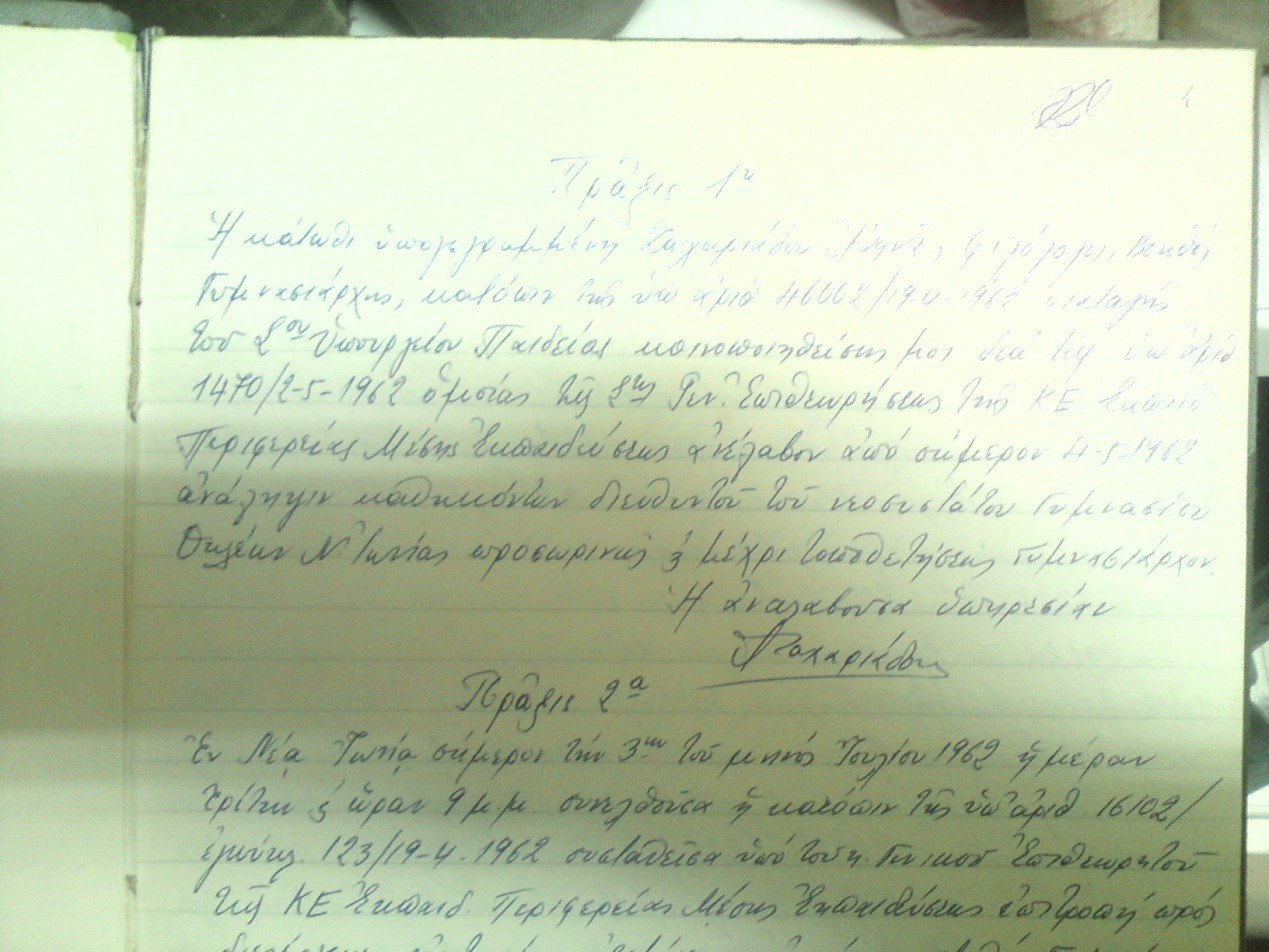 1
Πρᾶξις 1η
Ἡ κάτωθι ὑπογεγραμμένη Ζαχαριάδου Ἀθηνᾶ, φιλόλογος, Βοηθός
Γυμνασιάρχης, κατόπιν τῆς ὑπ' ἀριθ 46002/19-4-1962 διαταγῆς
τοῦ Σου Ὑπουργείου Παιδείας κοινοποιηθείσης μοι διὰ τῆς ὑπ' ἀριθ
1470/2-5-1962 ὁμοίας τῆς Σης Γεν. Ἐπιθεωρήσεως τῆς ΚΕ Ἐκπαιδ
Περιφερείας Μέσης Ἐκπαιδεύσεως ἀνέλαβον ἀπὸ σήμερον 4-5-1962
ἀνάληψιν καθηκόντων διευθυντοῦ τοῦ νεοσυστάτου Γυμνασίου
Θηλέων Ν. Ἰωνίας προσωρινῶς ἢ μέχρι τοποθετήσεως γυμνασιάρχου.
Ἡ ἀναλαβοῦσα ὑπηρεσίαν
Ζαχαριάδου
Πρᾶξις 2α
Ἐν Νέᾳ Ἰωνίᾳ σήμερον τὴν 3ην τοῦ μηνὸς Ἰουλίου 1962 ἡμέραν
τρίτην ὥραν 9 μ.μ. συνελθοῦσα ἡ κατόπιν τῆς ὑπ' ἀριθ 16102/
ἐγκύκλ. 123/19-4-1962 συσταθεῖσα ὑπὸ τοῦ κ. Γενικοῦ Ἐπιθεωρητοῦ
τῆς ΚΕ Ἐκπαιδ. Περιφερείας Μέσης Ἐκπαιδεύσεως ἐπιτροπὴ πρὸς